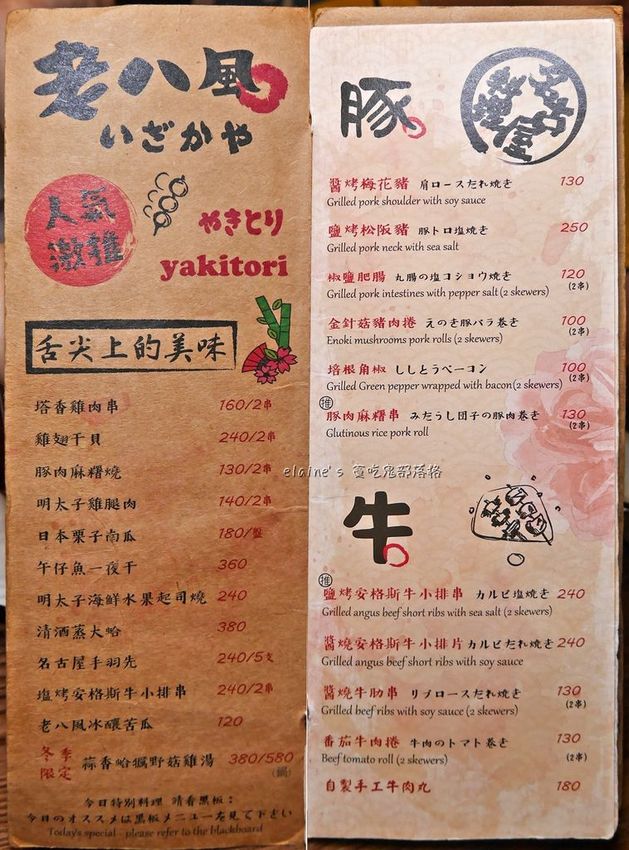 老八風
いざかや
人氣
激推
やきとり
yakitori
舌尖上的美味
塔香雞肉串 160/2串
雞翅干貝 240/2串
豚肉麻糬燒 130/2串
明太子雞腿肉 140/2串
日本栗子南瓜 180/盤
午仔魚一夜干 360
明太子海鮮水果起司燒 240
清酒蒸大蛤 380
名古屋手羽先 240/5支
塩烤安格斯牛小排串 240/2串
老八風冰釀苦瓜 120
冬季限定 蒜香蛤蠣野菇雞湯 380/580
(鍋)
今日特別料理 請看黑板:
今日のオススメは黒板メニューを見て下さい
Today's special - please refer to the blackboard
豚
醬烤梅花豬 肩ロースだれ焼き 130
Grilled pork shoulder with soy sauce
鹽烤松阪豬 豚トロ塩焼き 250
Grilled pork neck with sea salt
椒鹽肥腸 丸腸の塩コショウ焼き 120
Grilled pork intestines with pepper salt (2 skewers) (2串)
金針菇豬肉捲 えのき豚バラ巻き 100
Enoki mushrooms pork rolls (2 skewers) (2串)
培根角椒 ししとうベーコン 100
Grilled Green pepper wrapped with bacon (2 skewers) (2串)
推 豚肉麻糬串 みだうし団子の豚肉巻き 130
Glutinous rice pork roll (2串)
elaine's 愛吃鬼部落格
牛
推 鹽烤安格斯牛小排串 カルビ塩焼き 240
Grilled angus beef short ribs with sea salt (2 skewers)
醬燒安格斯牛小排片 カルビだれ焼き 240
Grilled angus beef short ribs with soy sauce
醬燒牛肋串 リブロースだれ焼き 130
Grilled beef ribs with soy sauce (2 skewers) (2串)
番茄牛肉捲 牛肉のトマト巻き 130
Beef tomato roll (2 skewers) (2串)
自製手工牛肉丸 180